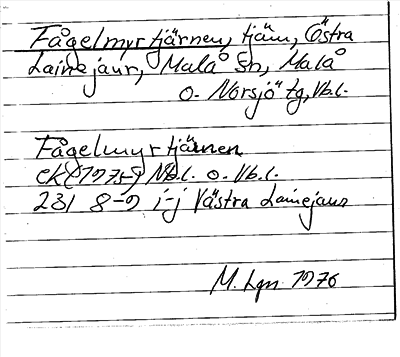 Fågelmyrtjärnen, tjärn, Östra
Lainejaur, Malå Sn, Malå
o. Norsjö tg, Vb.l.
Fågelmyrtjärnen
ek (1975) Nb.l. o. Vb.l.
23I 8-9 i-j Västra Lainejaur
M. Lgn 1976